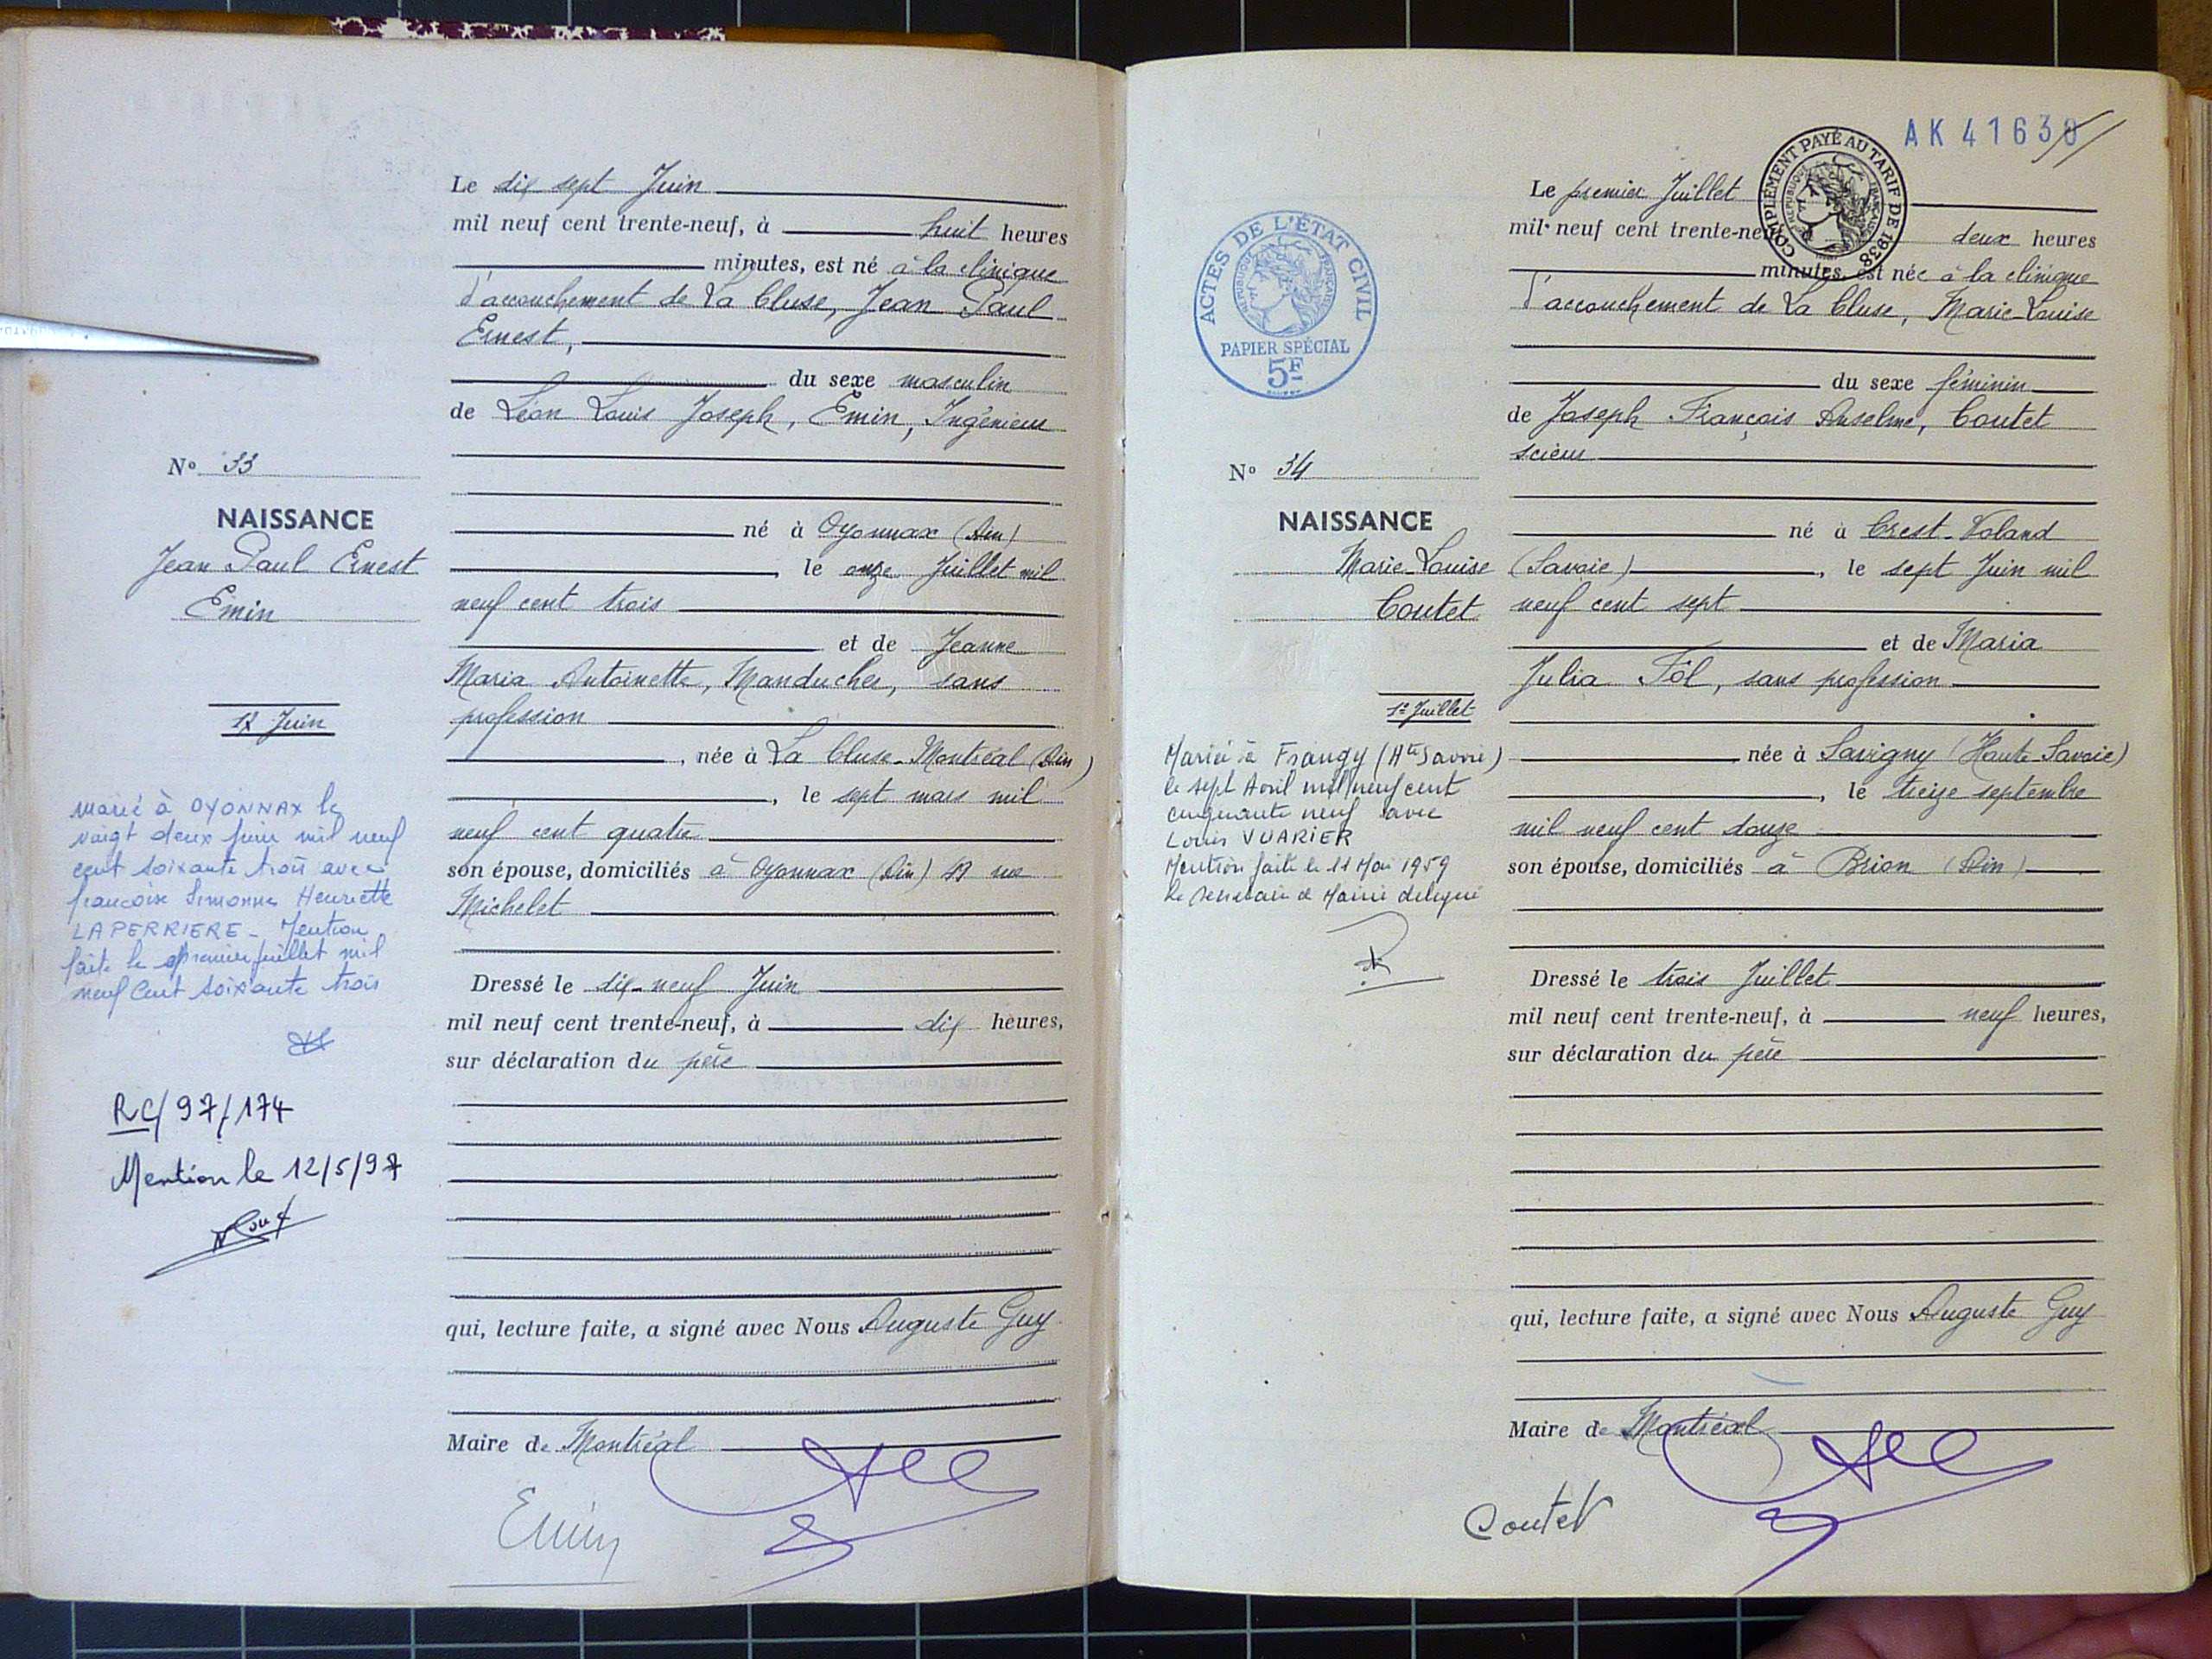 Le dix sept Juin
mil neuf cent trente-neuf, à huit heures
minutes, est né à la clinique
d'accouchement de La Cluse, Jean Paul
Ernest,
du sexe masculin
de Léon Louis Joseph, Emin, Ingénieur
né à Oyonnax (Ain)
, le onze Juillet mil
neuf cent trois
et de Jeanne
Maria Antoinette, Manducher, sans
profession
, née à La Cluse-Montréal (Ain)
, le sept mars mil
neuf cent quatre
son épouse, domiciliés à Oyonnax (Ain) rue
Michelet
Dressé le dix-neuf Juin
mil neuf cent trente-neuf, à dix heures,
sur déclaration du père
qui, lecture faite, a signé avec Nous Auguste Guy
Maire de Montréal
Emin
No 33
NAISSANCE
Jean Paul Ernest
Emin
17 Juin
marié à OYONNAX le
vingt deux juin mil neuf
cent soixante trois avec
françoise Simonne Henriette
LAPERRIERE - Mention
faite le premier juillet mil
neuf cent soixante trois
RC/97/174
Mention le 12/5/97
AK 41630
COMPLÉMENT PAYÉ AU TARIF DE 1938
RÉPUBLIQUE FRANÇAISE
Le premier Juillet
mil neuf cent trente-neuf deux heures
minutes, est née à la clinique
d'accouchement de La Cluse, Marie-Louise
du sexe féminin
de Joseph François Anselme, Coutet
scieur
né à Crest-Voland
(Savoie) , le sept Juin mil
neuf cent sept
et de Maria
Julia Fol, sans profession
née à Savigny (Haute Savoie)
, le treize septembre
mil neuf cent douze
son épouse, domiciliés à Brion (Ain)
Dressé le trois Juillet
mil neuf cent trente-neuf, à neuf heures,
sur déclaration du père
qui, lecture faite, a signé avec Nous Auguste Guy
Maire de Montréal
Coutet
ACTES DE L'ÉTAT CIVIL
RÉPUBLIQUE FRANÇAISE
PAPIER SPÉCIAL
5F
No 34
NAISSANCE
Marie-Louise
Coutet
1er Juillet
Mariée à Frangy (Hte Savoie)
le sept Avril mil neuf cent
cinquante neuf avec
Louis VUARIER
Mention faite le 11 Mai 1959
Le secrétaire de Mairie délégué